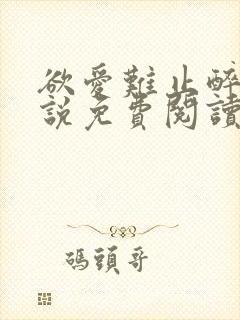 欲愛難止醉
說免費閱讀
碼頭哥